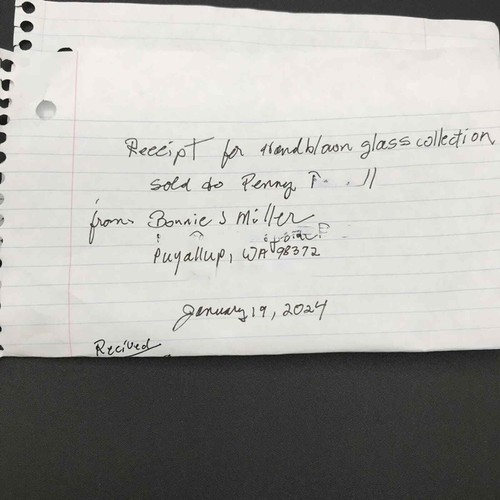 Receipt for Handblown glass collection
sold to Penny
from Bonnie J Miller
Puyallup, WA 98372
January 19, 2024
Recived